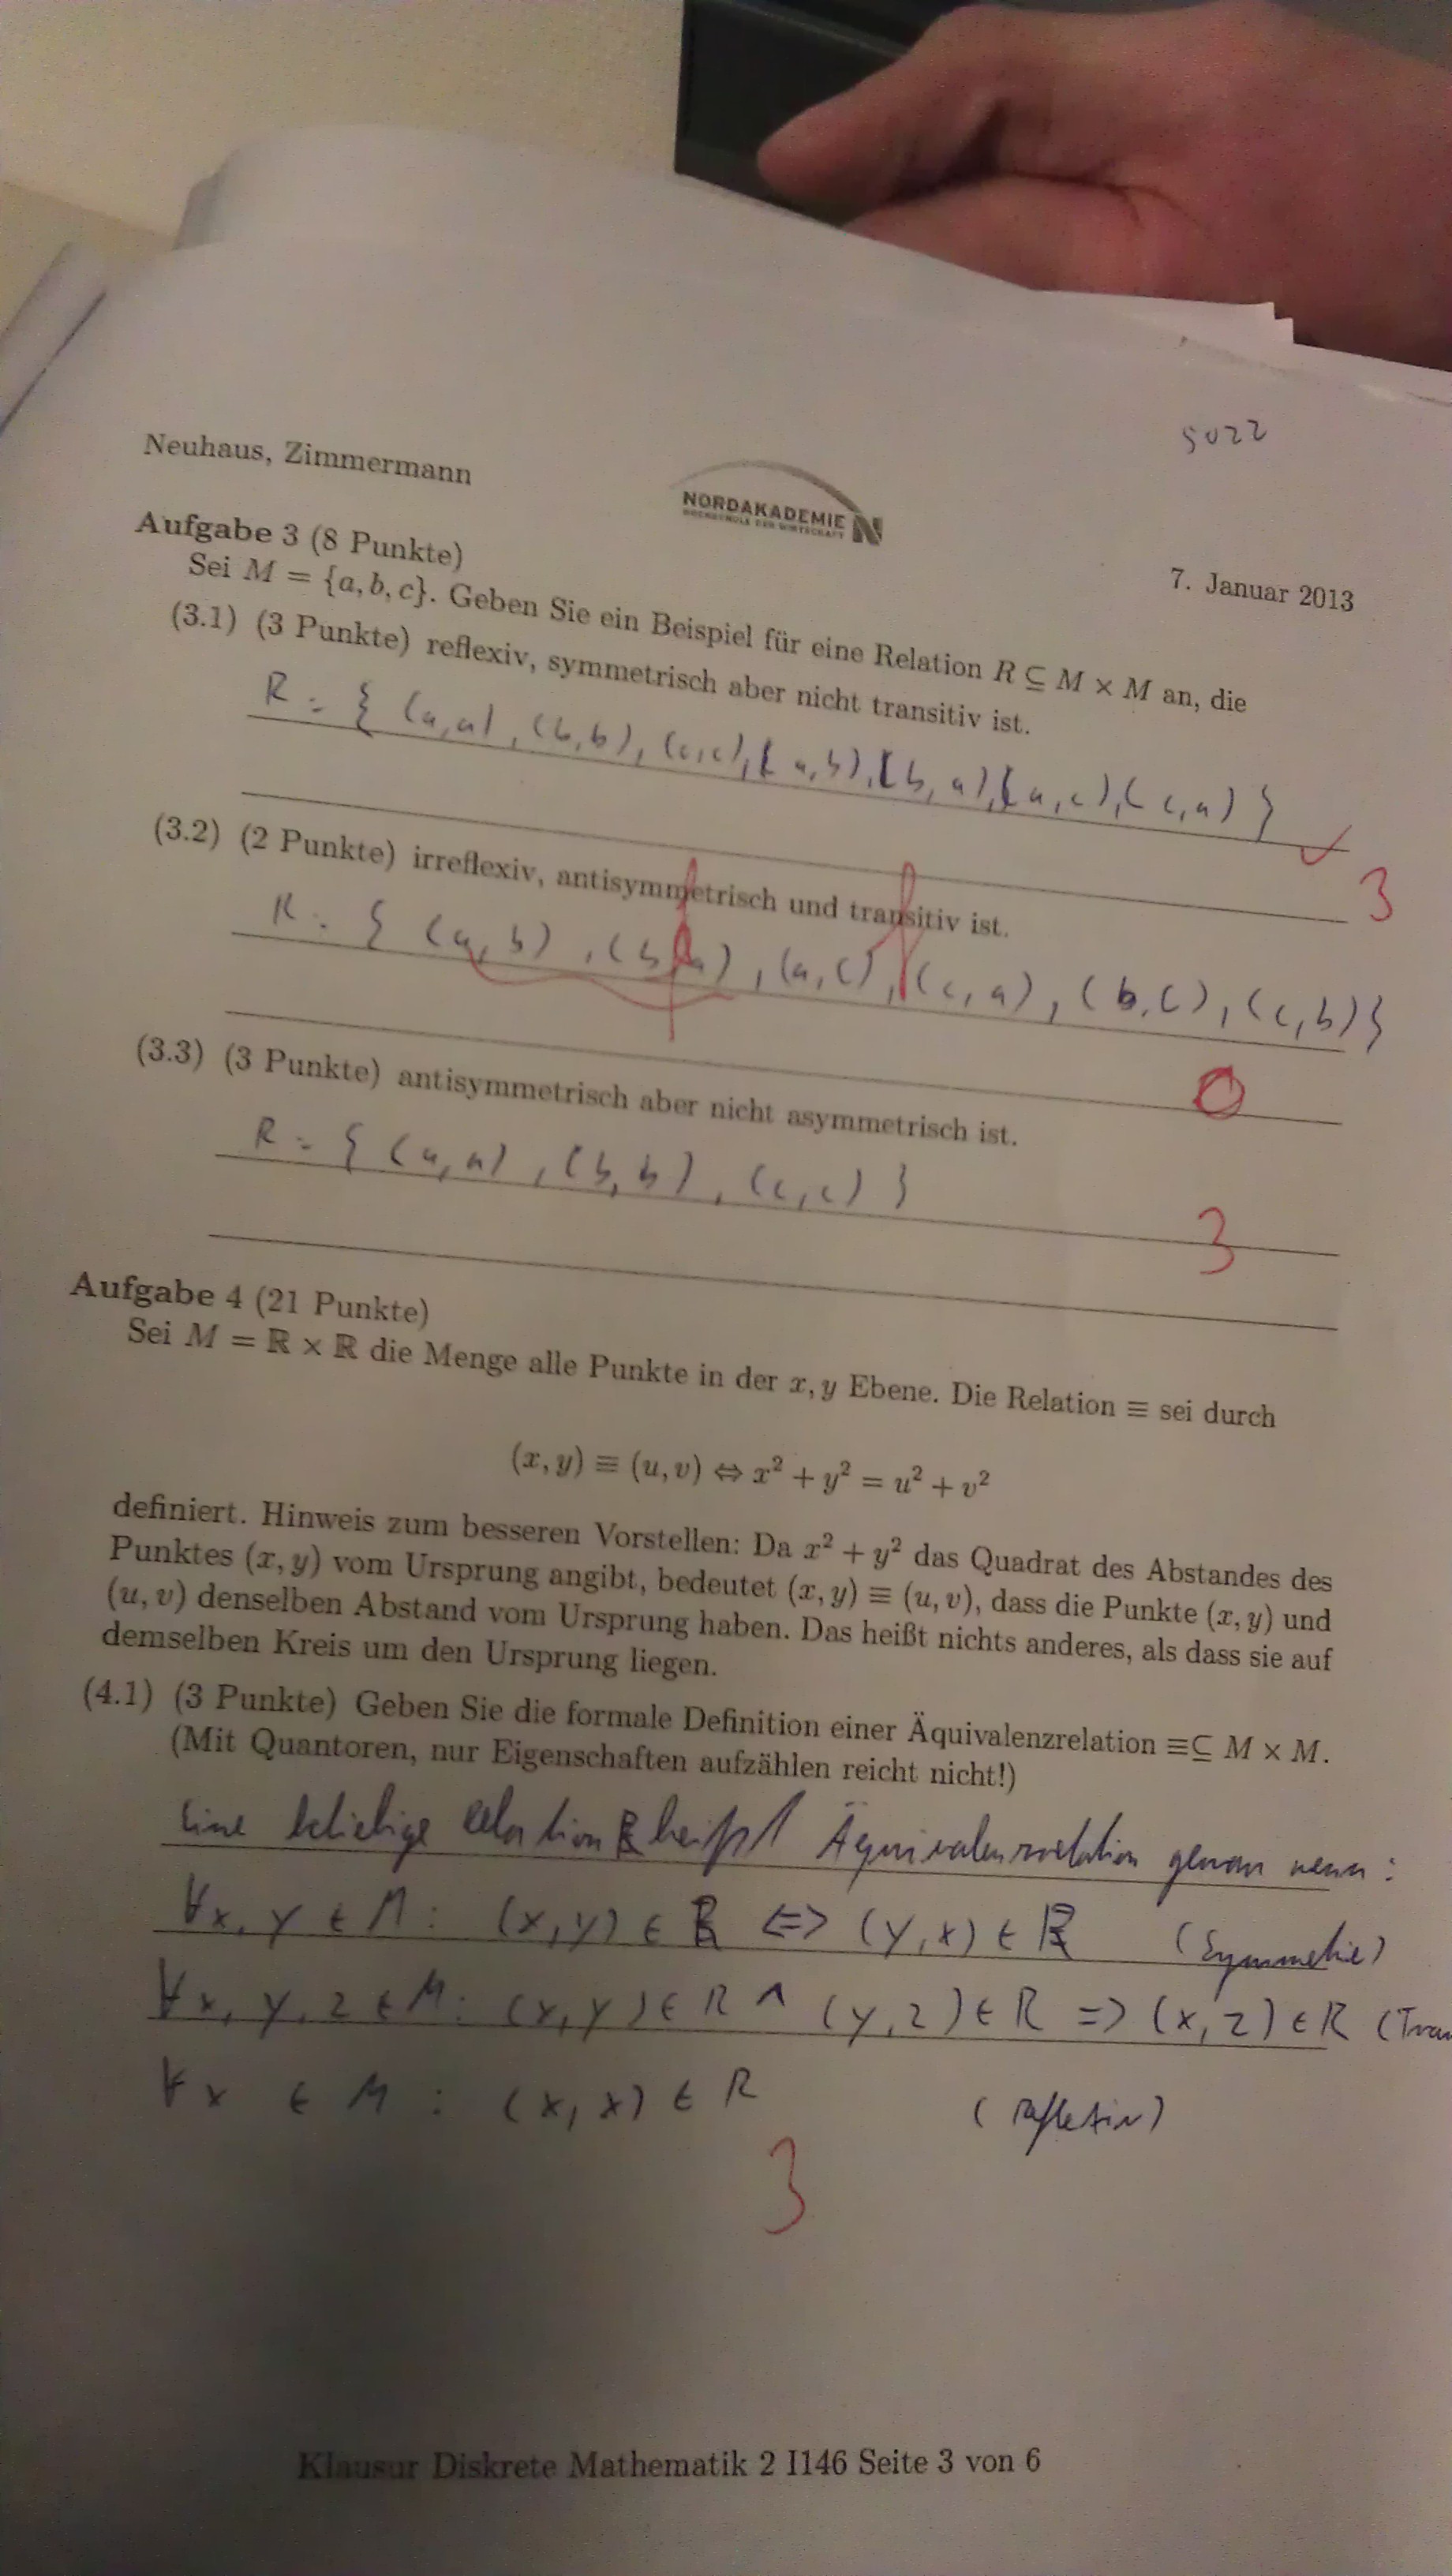 5022
Neuhaus, Zimmermann
NORDAKADEMIE N
HOCHSCHULE DER WIRTSCHAFT
7. Januar 2013
Aufgabe 3 (8 Punkte)
Sei M = {a, b, c}. Geben Sie ein Beispiel für eine Relation R ⊆ M × M an, die
(3.1) (3 Punkte) reflexiv, symmetrisch aber nicht transitiv ist.
R = { (a,a), (b,b), (c,c), (a,b), (b,a), (a,c), (c,a) }
✓ 3
(3.2) (2 Punkte) irreflexiv, antisymmetrisch und transitiv ist.
R = { (a,b), (b,a), (a,c), (c,a), (b,c), (c,b) }
f f
0
(3.3) (3 Punkte) antisymmetrisch aber nicht asymmetrisch ist.
R = { (a,a), (b,b), (c,c) }
3
Aufgabe 4 (21 Punkte)
Sei M = ℝ × ℝ die Menge alle Punkte in der x, y Ebene. Die Relation ≡ sei durch
(x, y) ≡ (u, v) ⇔ x² + y² = u² + v²
definiert. Hinweis zum besseren Vorstellen: Da x² + y² das Quadrat des Abstandes des
Punktes (x, y) vom Ursprung angibt, bedeutet (x, y) ≡ (u, v), dass die Punkte (x, y) und
(u, v) denselben Abstand vom Ursprung haben. Das heißt nichts anderes, als dass sie auf
demselben Kreis um den Ursprung liegen.
(4.1) (3 Punkte) Geben Sie die formale Definition einer Äquivalenzrelation ≡⊆ M × M.
(Mit Quantoren, nur Eigenschaften aufzählen reicht nicht!)
Eine beliebige Relation R heißt Äquivalenzrelation genau wenn:
∀x, y ∈ M: (x,y) ∈ R ⇔ (y,x) ∈ R (Symmetrie)
∀x, y, z ∈ M: (x,y) ∈ R ∧ (y,z) ∈ R => (x,z) ∈ R (Tran
∀x ∈ M : (x,x) ∈ R (Reflexiv)
3
Klausur Diskrete Mathematik 2 I146 Seite 3 von 6